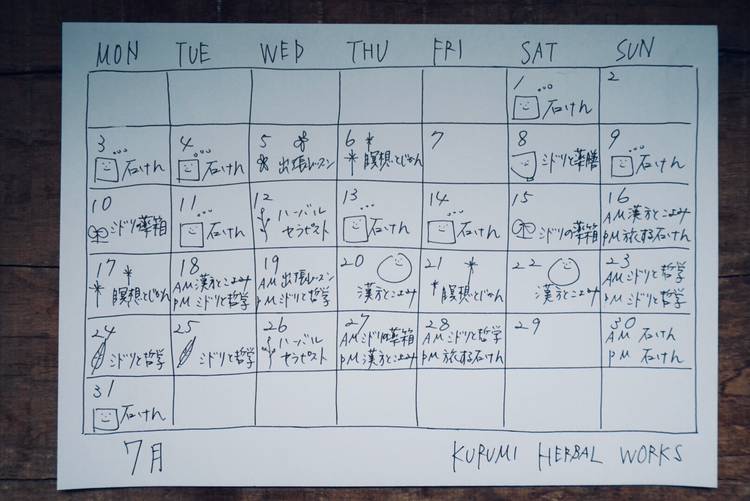 MON TUE WED THU FRI SAT SUN
1 石けん
2
3 石けん
4 石けん
5 出張レースン
6 瞑想とじかん
7
8 ミドリと薬膳
9 石けん
10 ミドリの薬箱
11 石けん
12 ハーバル
セラピスト
13 石けん
14 石けん
15 ミドリの薬箱
16
AM 漢方とこよみ
PM 旅する石けん
17 瞑想とじかん
18
AM 漢方とこよみ
PM ミドリと哲学
19
AM 出張レースン
PM ミドリと哲学
20 漢方とこよみ
21 瞑想とじかん
22 漢方とこよみ
23
AM ミドリと哲学
PM ミドリと哲学
24 ミドリと哲学
25 ミドリと哲学
26 ハーバル
セラピスト
27
AM ミドリの薬箱
PM 漢方とこよみ
28
AM ミドリと哲学
PM 旅する石けん
29
30
AM 石けん
PM 石けん
31 石けん
7月 KURUMI HERBAL WORKS